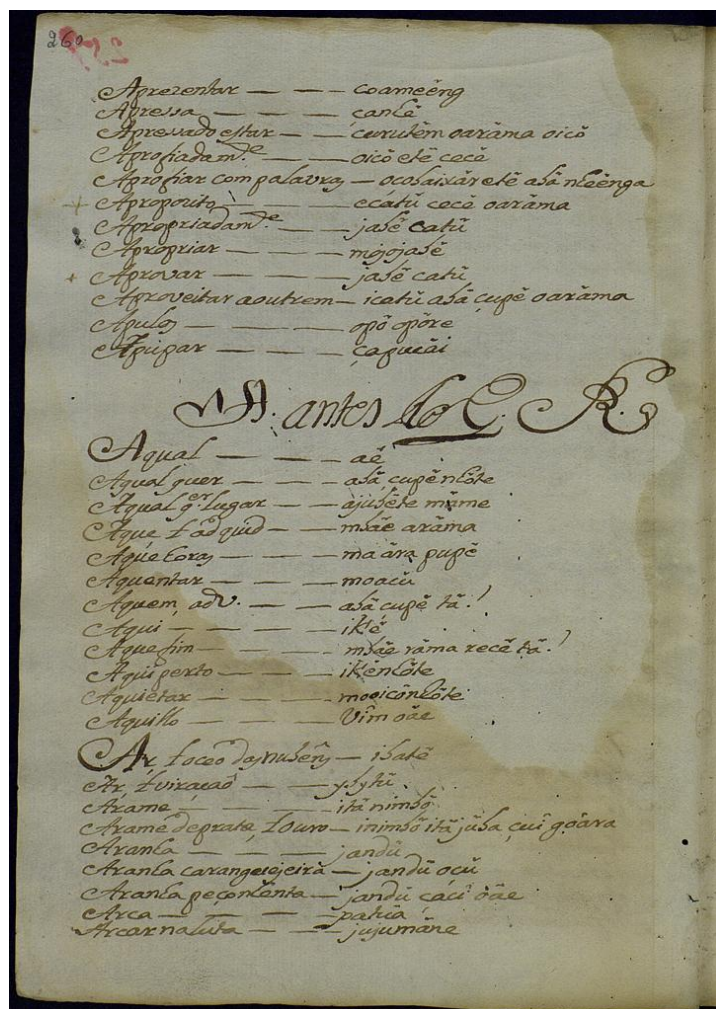 260
Aprezentar — — — coameēng
Apressa — — — — canhē
Apressado estar — — curutēm oarāma oicō
Aprofiadam.te — — — oicō etē cecē
Aprofiar com palavras — ocobaixār etē abā nheēnga
Aproposito — — — ecatū cecē oarāma
Apropriadam.te — — jabē catū
Apropriar — — — mojojabē
Aprovar — — — — jabē catū
Aproveitar aoutrem — icatū abā çupē oarāma
Apulos — — — — opō opōre
Apupar — — — — çapucāi
A. antes do Q. R.
Aqual — — — — aē
Aqual quer — — — abā çupē nhōte
Aqual q.er lugar — — ajubēte māme
Aque, t ad quid — — mbāe arāma
Aque horas — — — ma āra pupē
Aquentar — — — moacū
Aquem, adv. — — abā çupē tā?
Aqui — — — — ikē
Aque fim — — — mbāe rāma recē tā?
Aqui perto — — — ikē nhōte
Aquietar — — — mooicō nhōte
Aquillo — — — — Vîm oāe
Ar, t oceo das nuhens — ibatē
Ar, t viração — — — ybytū
Arame — — — — itā nimbō
Arame de prata, t ouro — inimbō itā jūba çuî goāra
Aranha — — — — jandū
Aranha carangejeira — jandū ocū
Aranha peçonhenta — jandū cācî oāe
Arca — — — — patuā
Arcar na luta — — — jujumāne